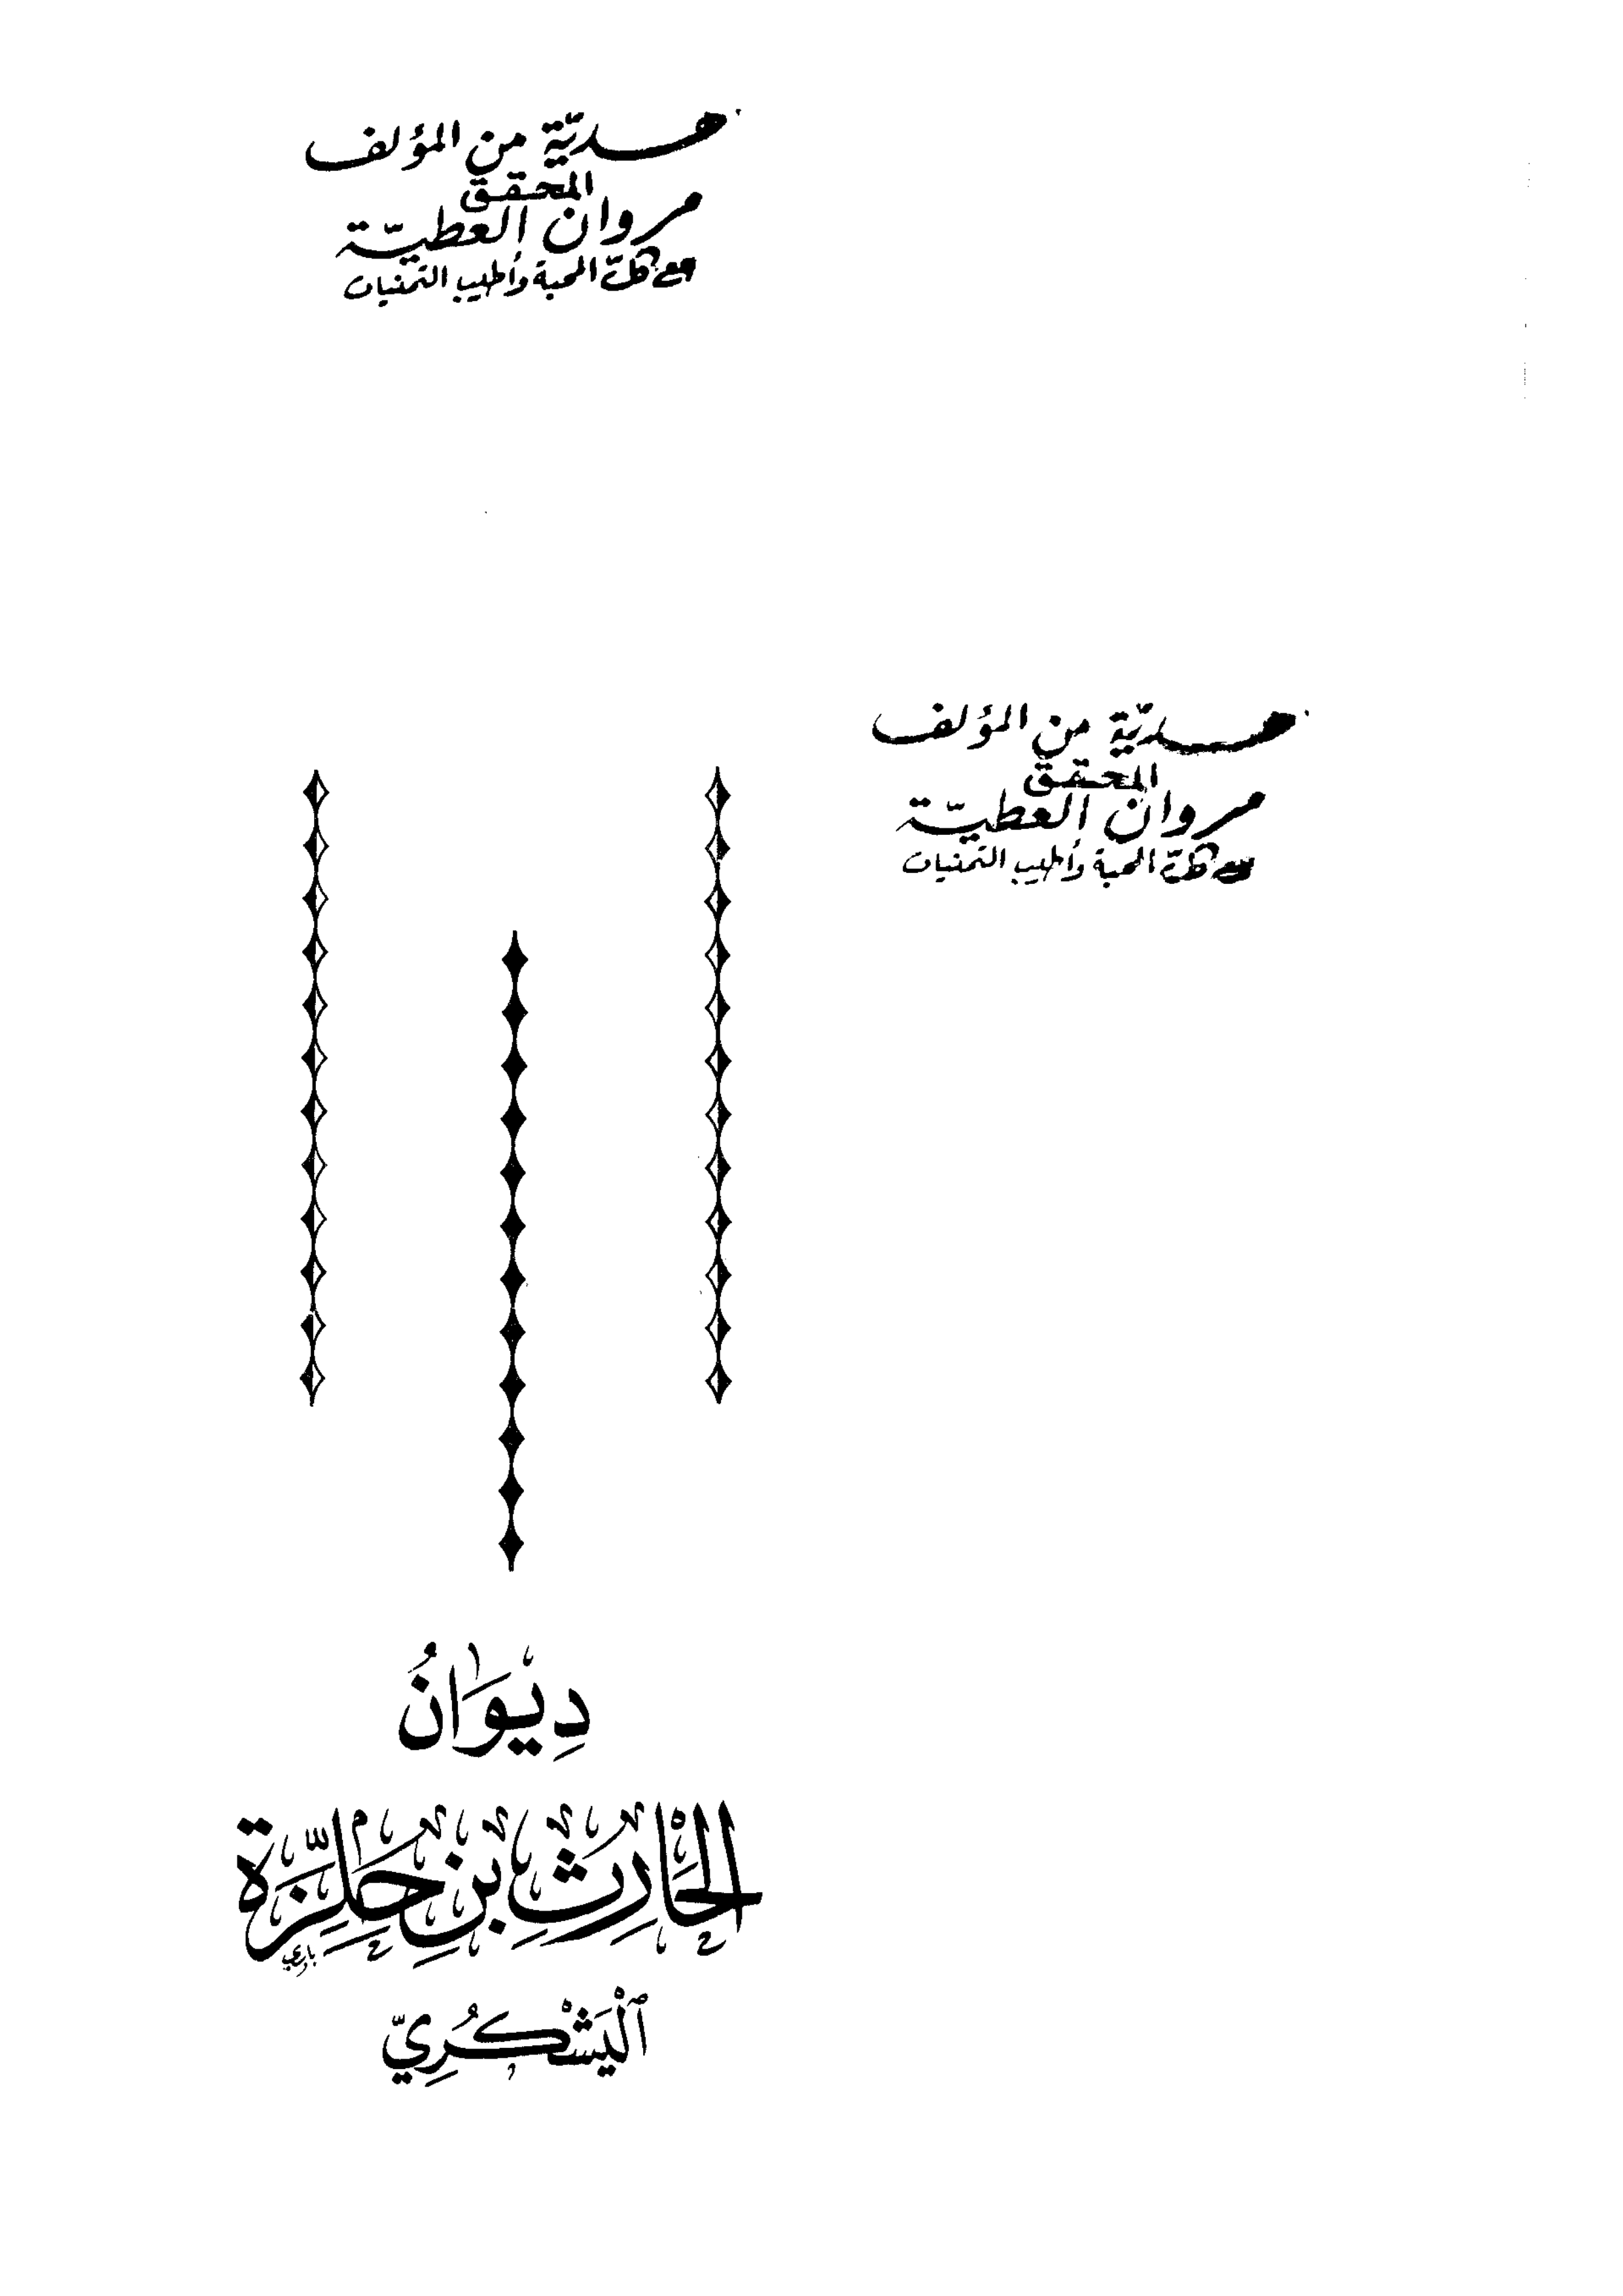 هديّة من المؤلف
المحقق
مروان العطيّة
مع كلّ المحبة وأطيب التمنيات
هديّة من المؤلف
المحقق
مروان العطيّة
مع كلّ المحبة وأطيب التمنيات
دِيْوَانُ
الحَارِثِ بْنِ حِلِّزَة
ٱلْيَشْكُرِيّ